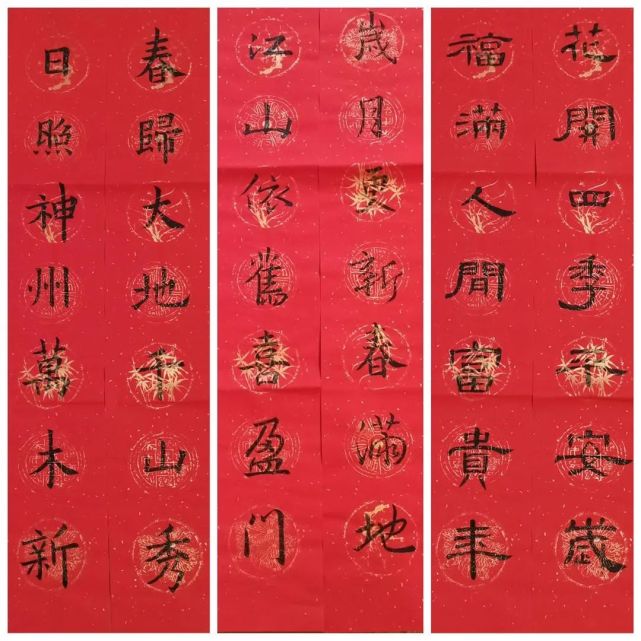 春歸大地千山秀
日照神州萬木新
歲月更新春滿地
江山依舊喜盈門
花開四季平安歲
福滿人間富貴年